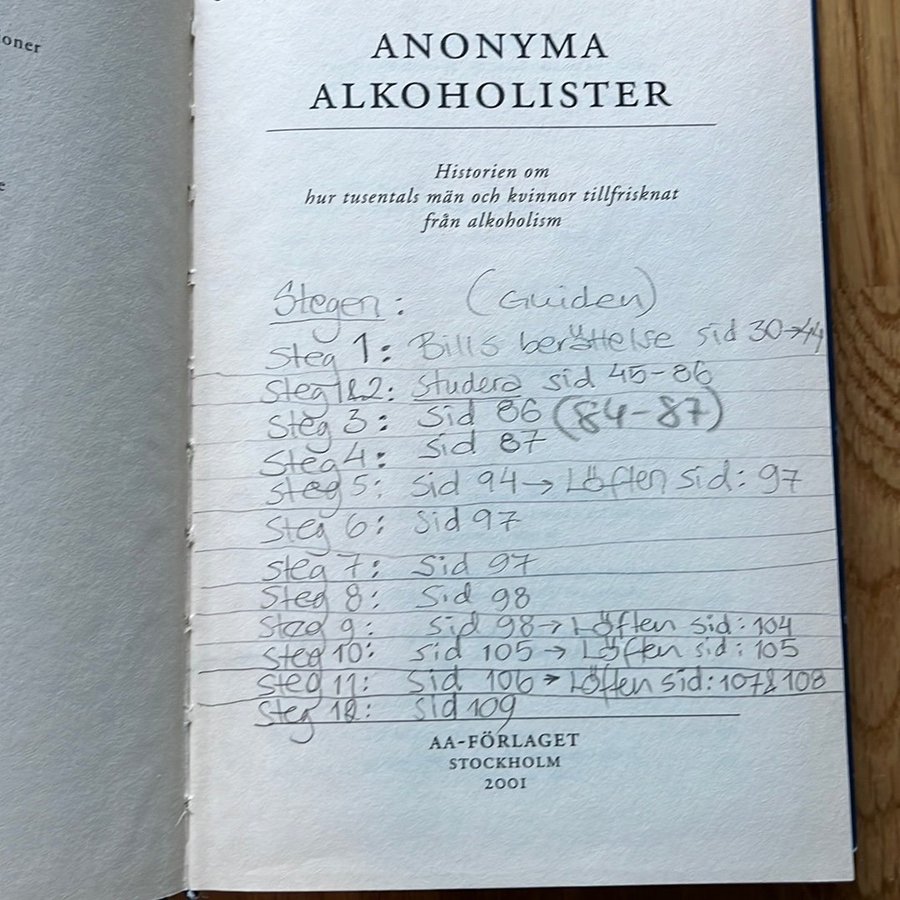 ioner
e
ANONYMA
ALKOHOLISTER
Historien om
hur tusentals män och kvinnor tillfrisknat
från alkoholism
Stegen: (Guiden)
Steg 1: Bills berättelse sid 30→44
Steg 1&2: Studera sid 45-86
Steg 3: Sid 86 (84-87)
Steg 4: Sid 87
Steg 5: Sid 94→ Löften sid: 97
Steg 6: Sid 97
Steg 7: Sid 97
Steg 8: Sid 98
Steg 9: Sid 98→ Löften sid: 104
Steg 10: Sid 105 → Löften sid: 105
Steg 11: Sid 106 → Löften sid: 107&108
Steg 12: Sid 109
AA-FÖRLAGET
STOCKHOLM
2001